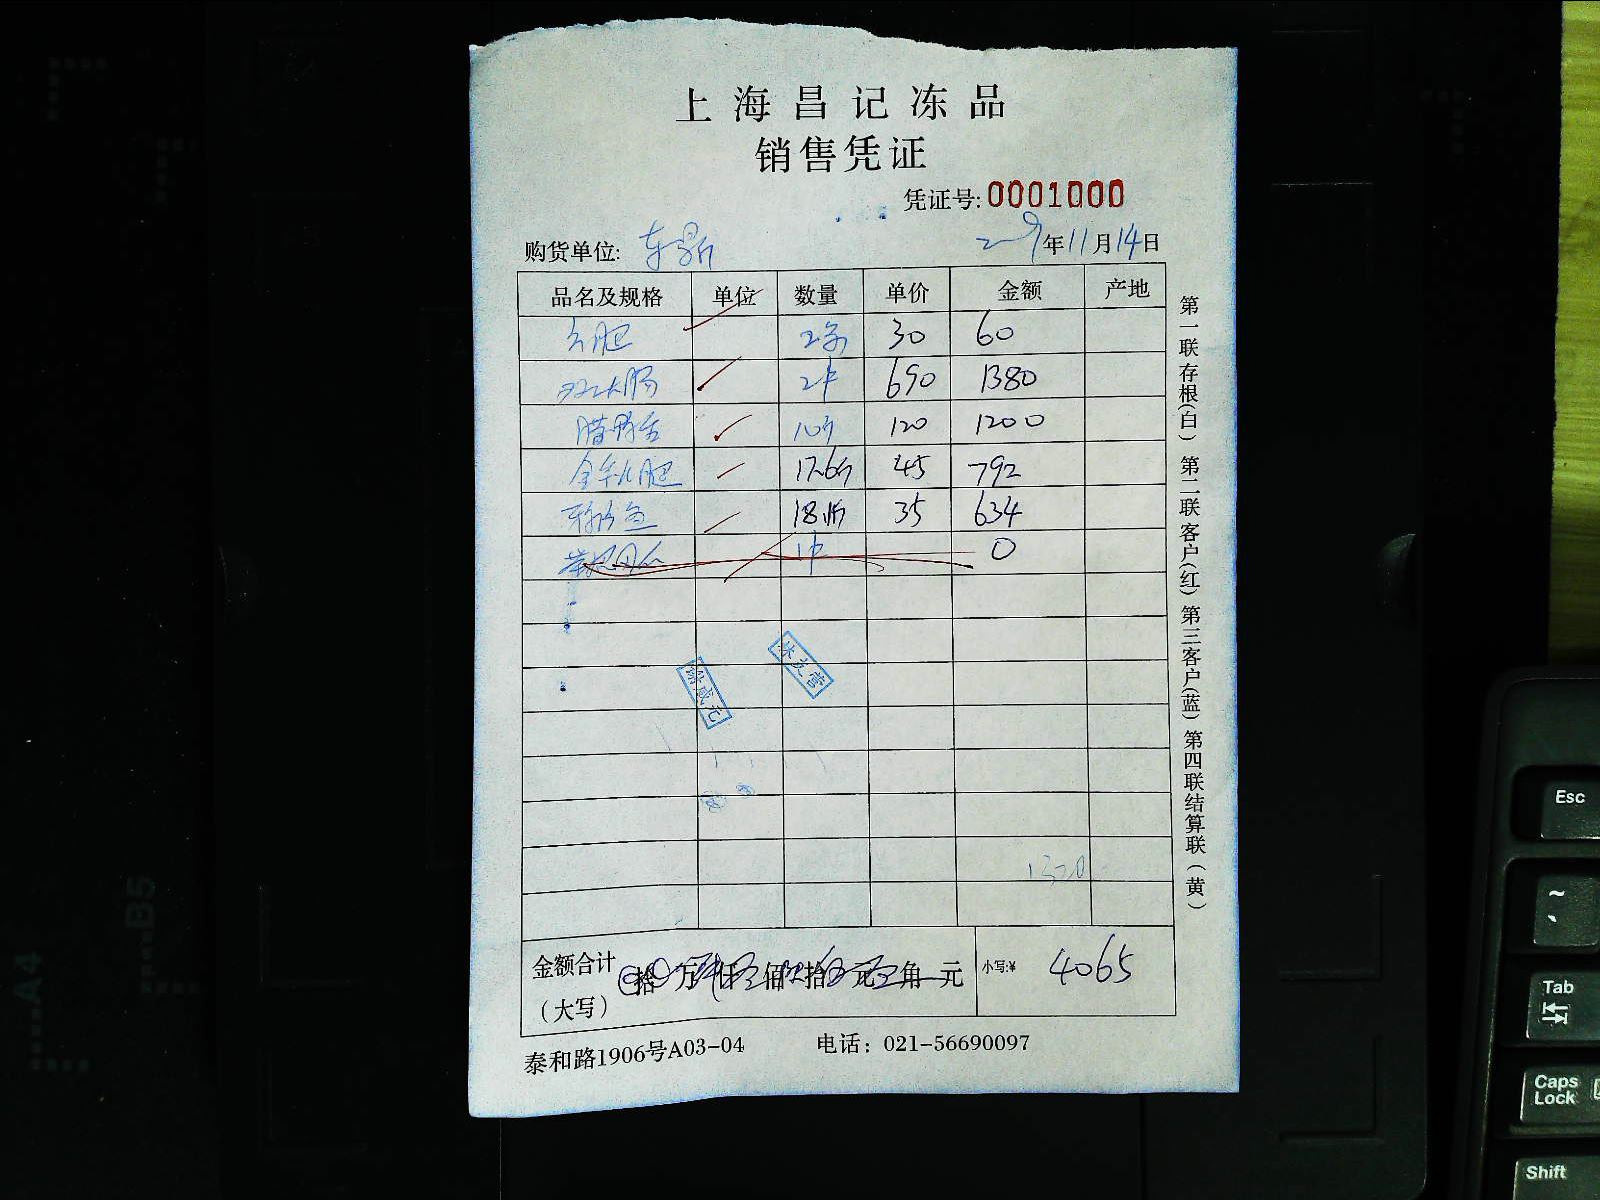 上海昌记冻品
销售凭证
凭证号: 0001000
购货单位: 2009年11月14日
品名及规格 单位 数量 单价 金额 产地
30 60
双江大肠 2件 690 1380
腊鸭舌 10斤 120 1200
17.6斤 45 792
18.1斤 35 634
1件 0
林友营
谢盛元
1320
金额合计（大写） 拾 万 仟 佰 拾 元 角 元 小写:¥ 4065
泰和路1906号A03-04 电话：021-56690097
第一联存根(白) 第二联客户(红) 第三客户(蓝) 第四联结算联(黄)
A4
B5
Esc
~
Tab
Caps Lock
Shift